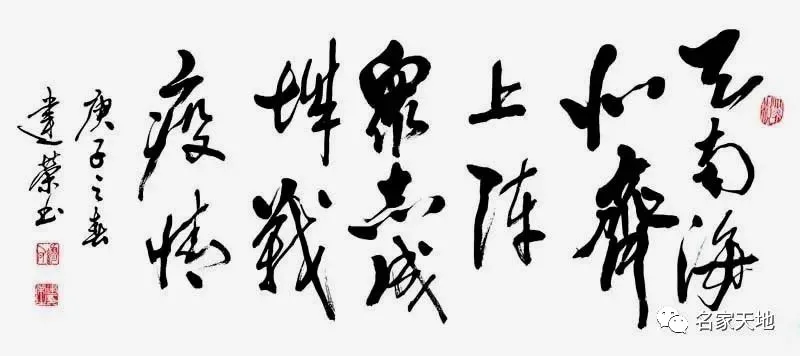 天南海
北齊
上阵
眾志成
城戰
疫情
庚子之春
建荣书
名家天地